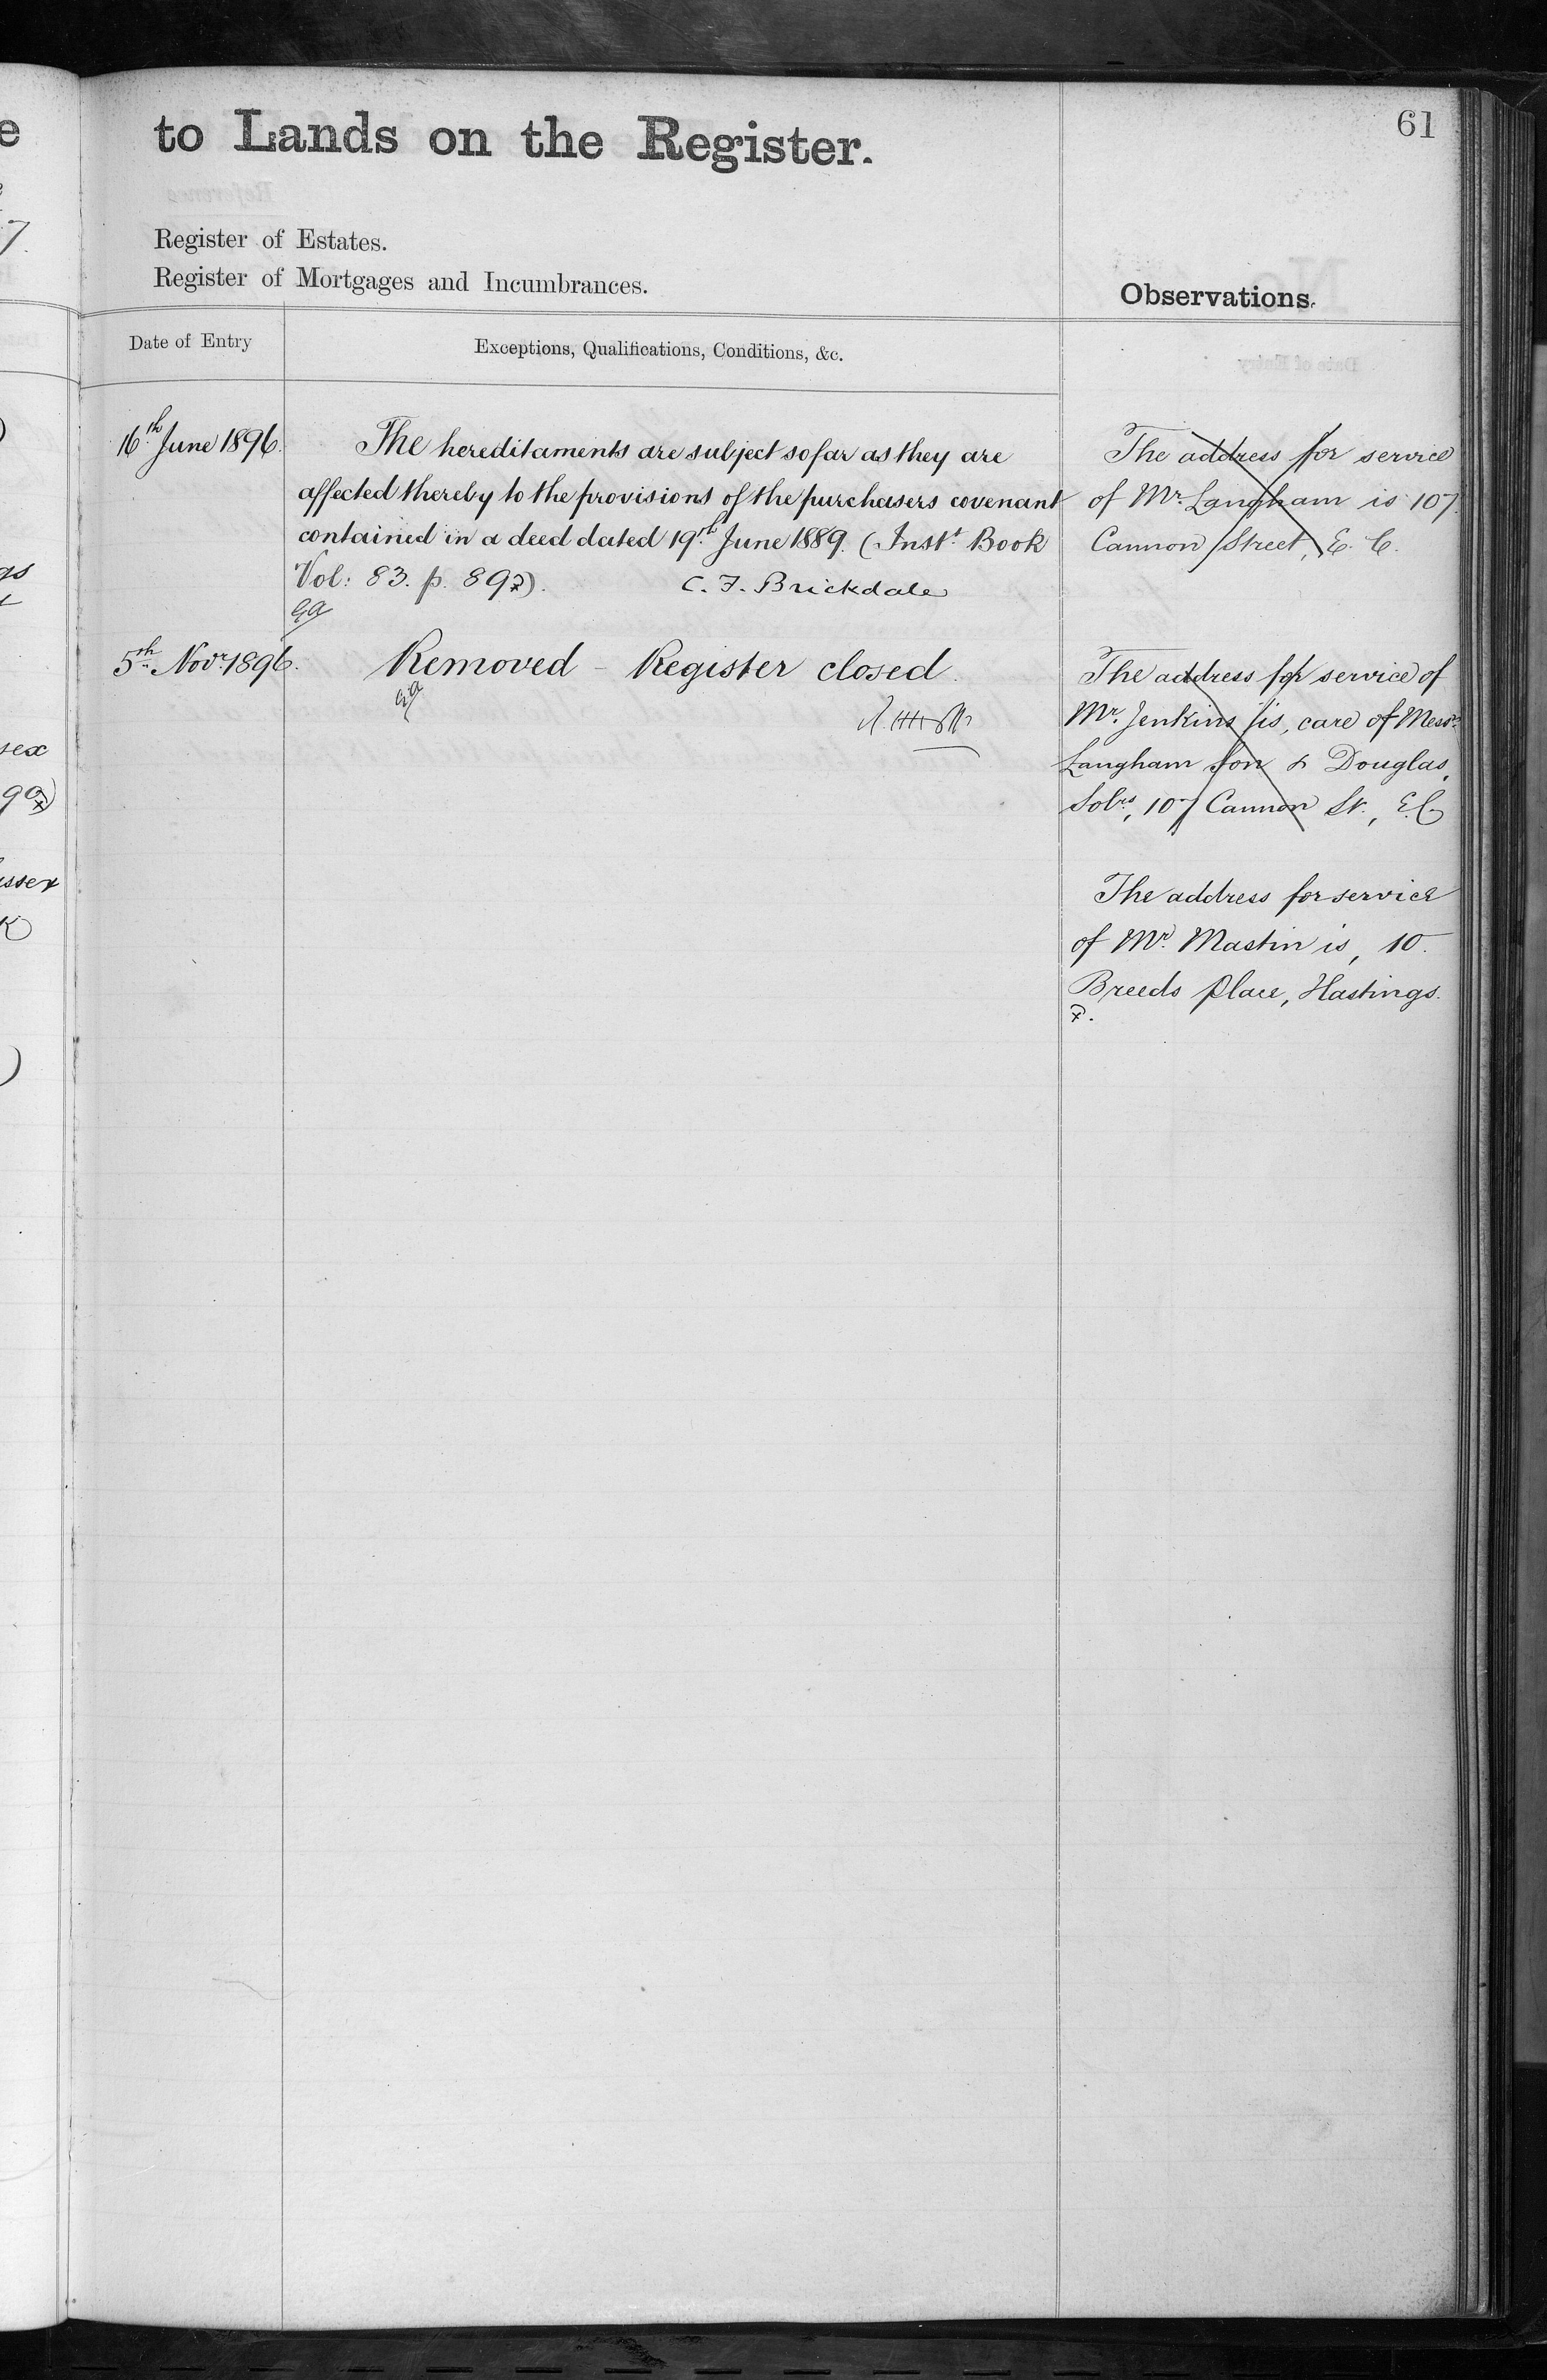 61
to Lands on the Register.
Register of Estates.
Register of Mortgages and Incumbrances.
Observations.
Date of Entry
Exceptions, Qualifications, Conditions, &c.
16th June 1896.
The hereditaments are subject so far as they are
affected thereby to the provisions of the purchasers covenant
contained in a deed dated 19th June 1889. (Instt Book
Vol: 83. p. 897).
C. F. Brickdale
5th Novr 1896.
Removed - Register closed.
The address for service
of Mr. Langham is 107
Cannon Street, E. C.
The address for service of
Mr. Jenkins is, care of Messrs
Langham Son & Douglas,
Solrs, 107 Cannon St., E.C.
The address for service
of Mr. Mastin is, 10.
Breeds place, Hastings.